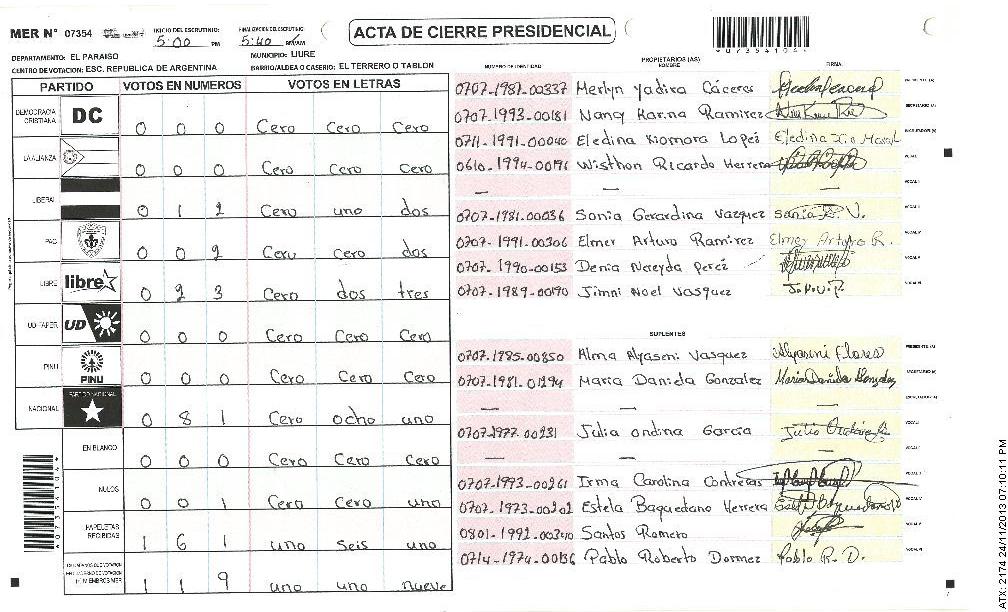 MER N° 07354
INICIO DEL ESCRUTINIO: 5:00 PM
FINALIZACION DEL ESCRUTINIO: 5:40 PM
ACTA DE CIERRE PRESIDENCIAL
*07354104*
DEPARTAMENTO: EL PARAISO
MUNICIPIO: LIURE
CENTRO DE VOTACION: ESC. REPUBLICA DE ARGENTINA
BARRIO/ALDEA O CASERIO: EL TERRERO O TABLON
PARTIDO VOTOS EN NUMEROS VOTOS EN LETRAS
DEMOCRACIA CRISTIANA DC 0 0 0 Cero Cero Cero
LA ALIANZA 0 0 0 Cero Cero Cero
LIBERAL 0 1 2 Cero uno dos
PAC 0 0 2 Cero cero dos
LIBRE libre 0 23 Cero dos tres
UD-FAPER UD 0 0 0 Cero Cero Cero
PINU PINU 0 0 0 Cero Cero Cero
NACIONAL PARTIDO NACIONAL 0 8 1 Cero ocho uno
EN BLANCO 0 0 0 Cero Cero Cero
NULOS 0 0 1 Cero Cero uno
PAPELETAS RECIBIDAS 1 6 1 uno seis uno
1 1 9 uno uno nueve
*07354104*
PROPIETARIOS (AS)
NUMERO DE IDENTIDAD NOMBRE FIRMA
0707-1987-00337 Merlyn Yadira Cáceres
0707-1993-00181 Nancy Karina Ramirez
0711-1991-00040 Eledina Xiomara Lopez Eledina
0610-1994-00196 Wisthon Ricardo Herrera
— — —
0707-1981-00036 Sonia Gerardina Vazquez Sonia V.
0707-1991-00306 Elmer Arturo Ramirez Elmer Arturo R.
0707-1990-00153 Denia Nereyda Perez
0707-1989-00190 Jimni Noel Vasquez
SUPLENTES
0707-1995-00850 Alma Alyaseni Vasquez Alyaseni Flores
0707-1981-01294 Maria Daniela Gonzalez Maria Daniela Gonzalez
— — —
0707-1977-00231 Julia Ondina Garcia
— —
0707-1993-00261 Irma Carolina Contreras
0707-1973-00202 Estela Baquedano Herrera
0801-1992-00340 Santos Romero
0714-1974-00136 Pablo Roberto Dormez Pablo R. D.
ATX: 2174 24/11/2013 07:10:11 PM